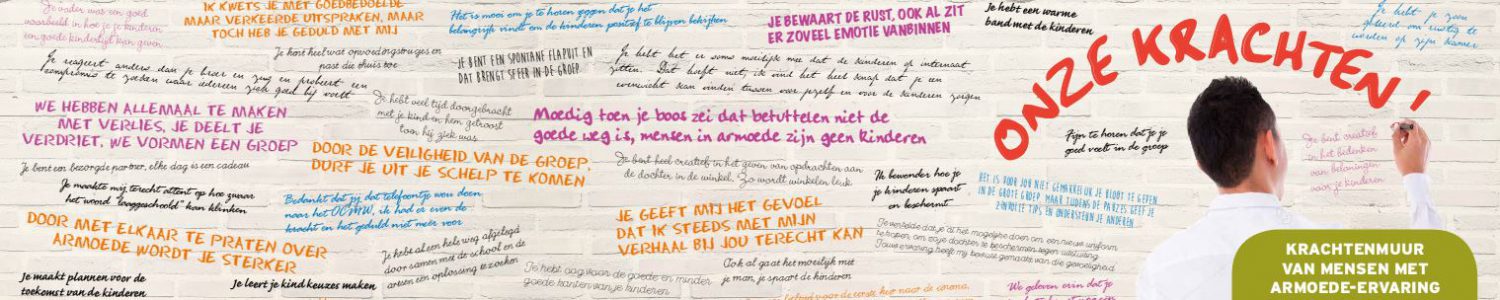 Je vader was een goed
voorbeeld in hoe je je kinderen
een goede kindertijd kan geven
IK KWETS JE MET GOEDBEDOELDE
MAAR VERKEERDE UITSPRAKEN, MAAR
TOCH HEB JE GEDULD MET MIJ
Het is mooi om je te horen zeggen dat je het
belangrijk vindt om de kinderen positief te blijven bekijken
JE BEWAART DE RUST, OOK AL ZIT
ER ZOVEEL EMOTIE VANBINNEN
Je hebt een warme
band met de kinderen
Je hebt je zoon
geleerd om rustig te
worden op zijn kamer
Je kent heel wat opvoedingstrucjes en
past die thuis toe
Je reageert anders dan je broer en zus en probeert een
compromis te zoeken waar iedereen zich goed bij voelt
JE BENT EEN SPONTANE FLAPUIT EN
DAT BRENGT SFEER IN DE GROEP
Je hebt het er soms moeilijk mee dat de kinderen op internaat
zitten. Dat hoeft niet, ik vind het heel knap dat je een
evenwicht kan vinden tussen voor jezelf en voor de kinderen zorgen
ONZE KRACHTEN!
WE HEBBEN ALLEMAAL TE MAKEN
MET VERLIES, JE DEELT JE
VERDRIET, WE VORMEN EEN GROEP
Je hebt veel tijd doorgebracht
met je kind en hem getroost
toen hij ziek was
Moedig toen je boos zei dat betuttelen niet de
goede weg is, mensen in armoede zijn geen kinderen
Fijn te horen dat je je
goed voelt in de groep
Je bent creatief
in het bedenken
van beloningen
voor je kinderen
Je bent een bezorgde partner, elke dag is een cadeau
DOOR DE VEILIGHEID VAN DE GROEP,
DURF JE UIT JE SCHELP TE KOMEN
Je bent heel creatief in het geven van opdrachten aan
de dochter in de winkel. Zo wordt winkelen leuk
Ik bewonder hoe je
je kinderen spaart
en beschermt
HET IS VOOR JOU NIET GEMAKKELIJK JE BLOOT TE GEVEN
IN DE GROTE GROEP MAAR TIJDENS DE PAUZES GEEF JE
ZINVOLLE TIPS EN ONDERSTEUN JE ANDEREN
Je maakte mij terecht attent op hoe zwaar
het woord "laaggeschoold" kan klinken
Bedankt dat jij dat telefoontje wou doen
naar het OCMW, ik had er even de
kracht en het geduld niet meer voor
DOOR MET ELKAAR TE PRATEN OVER
ARMOEDE WORDT JE STERKER
Je hebt al een hele weg afgelegd
door samen met de school en de
artsen een oplossing te zoeken
JE GEEFT MIJ HET GEVOEL
DAT IK STEEDS MET MIJN
VERHAAL BIJ JOU TERECHT KAN
Je vertelde dat je al het mogelijke doet om een nieuw uniform
te kopen om onze dochter te beschermen tegen uitsluiting
Jouw ervaring heeft mij bewust gemaakt van die gevoeligheid
Je maakt plannen voor de
toekomst van de kinderen
Je leert je kind keuzes maken
Je hebt oog voor de goede en minder
goede kanten van je kinderen
Ook al gaat het moeilijk met
je man, je spaart de kinderen
voor de eerste keer naar de cinema,
We geloven erin dat je
KRACHTENMUUR
VAN MENSEN MET
ARMOEDE-ERVARING